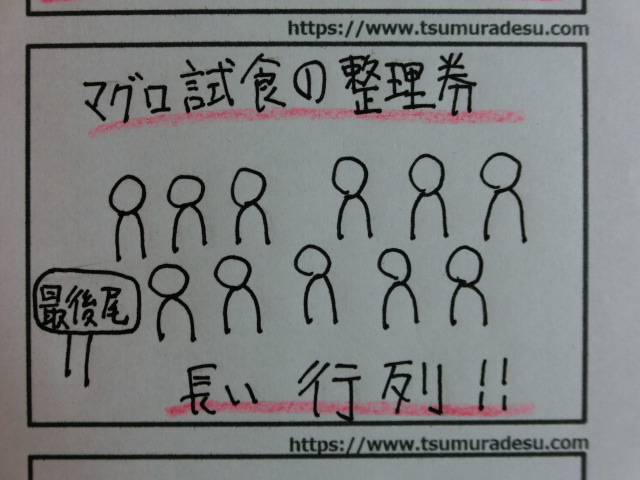 https://www.tsumuradesu.com
マグロ試食の整理券
最後尾
長い行列!!
https://www.tsumuradesu.com